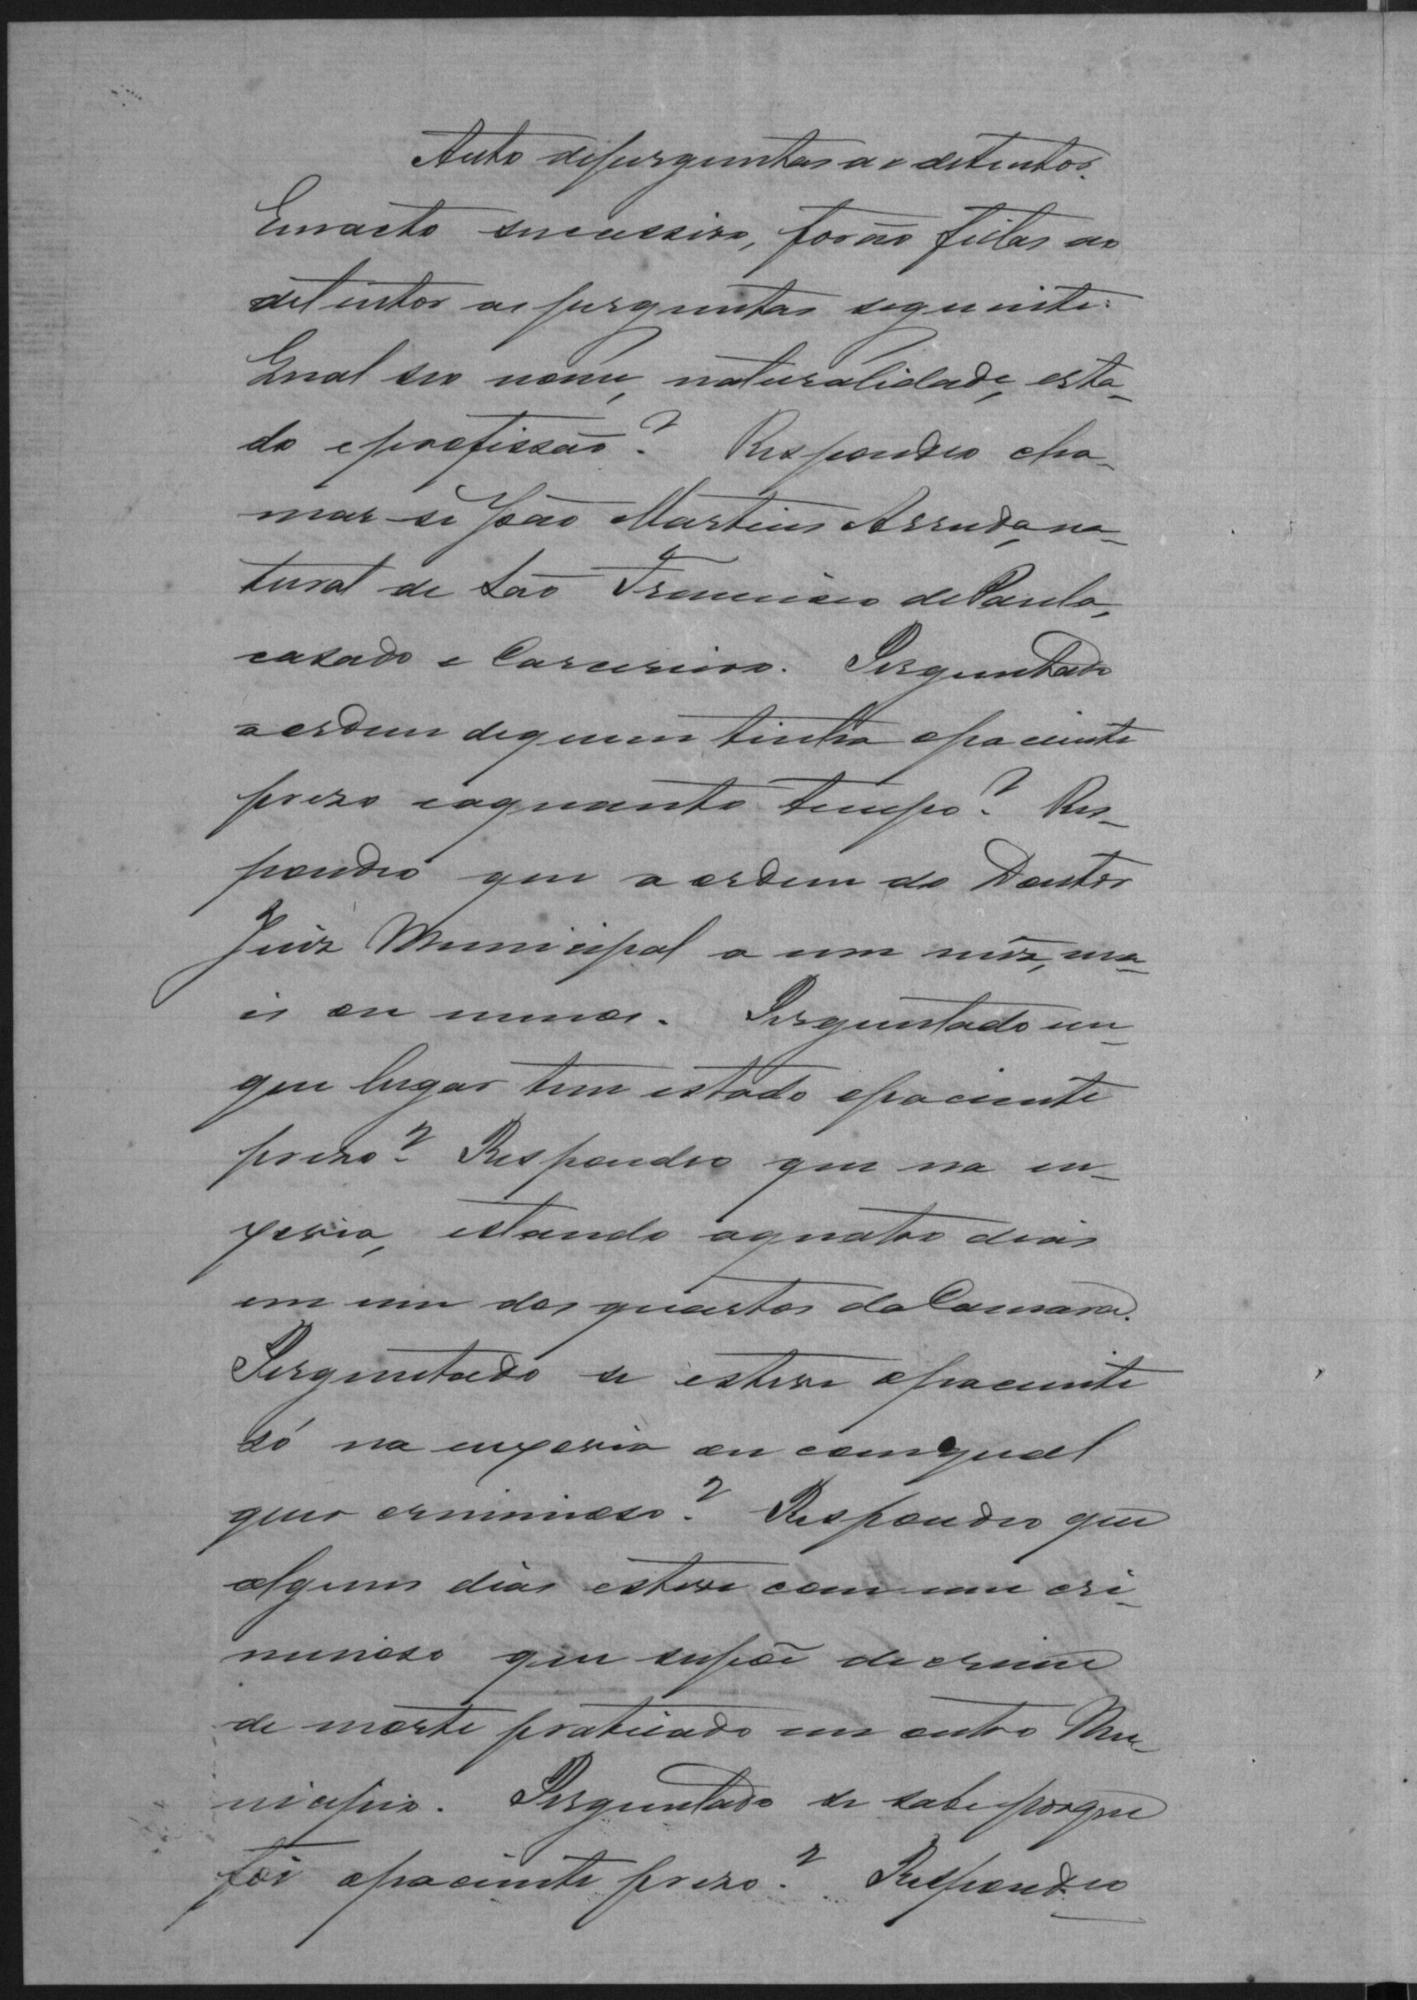 Auto de perguntas ao detentor.
Em acto sucessivo, forão feitas ao
detentor as perguntas seguinte:
Qual seo nome, naturalidade, esta-
do e profissão? Respondeo cha-
mar-se João Martins Arruda, na-
tural de São Francisco de Paula,
casado e Carcereiro. Perguntado
a ordem de quem tinha o paciente
prezo e a quanto tempo? Res-
pondeo que a ordem do Doutor
Juiz Municipal a um mez, ma-
is ou menos. Perguntado em
que lugar tem estado o paciente
prezo? Respondeo que na en-
xovia, estando a quatro dias
em um dos quartos da Camara.
Perguntado se esteve o paciente
só na enxovia ou com qual
quer criminoso? Respondeo que
alguns dias esteve com um cri-
minoso que supõe de crime
de morte praticado em outro Mu-
nicipio. Perguntado se sabe porque
foi o paciente prezo? Respondeo